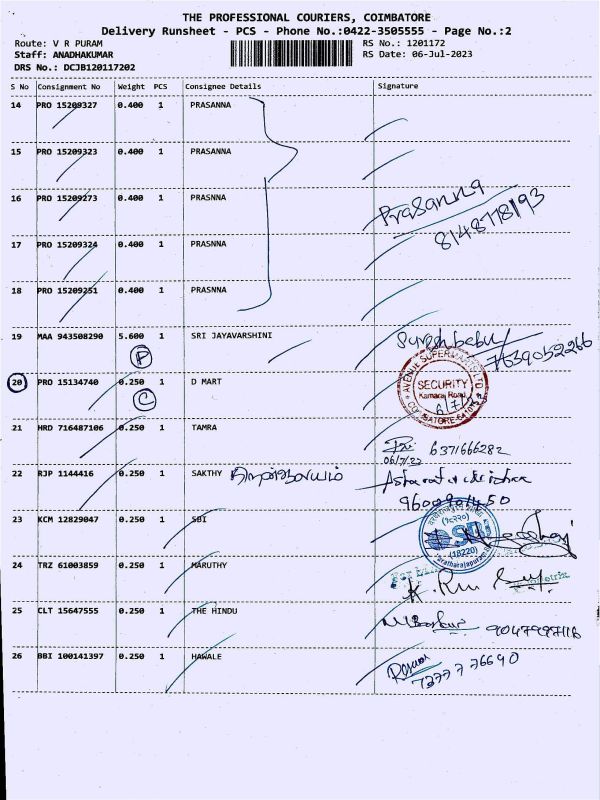 THE PROFESSIONAL COURIERS, COIMBATORE
Delivery Runsheet - PCS - Phone No.:0422-3505555 - Page No.:2
Route: V R PURAM RS No.: 1201172
Staff: ANADHAKUMAR RS Date: 06-Jul-2023
DRS No.: DCJB120117202
S No Consignment No Weight PCS Consignee Details Signature
14 PRO 15209327 0.400 1 PRASANNA
15 PRO 15209323 0.400 1 PRASANNA
16 PRO 15209273 0.400 1 PRASNNA Prasanna
8148778193
17 PRO 15209324 0.400 1 PRASNNA
18 PRO 15209251 0.400 1 PRASNNA
19 MAA 943508290 5.600 1 SRI JAYAVARSHINI Sureshbabu
P 7639052266
20 PRO 15134740 0.250 1 D MART
C
AVENUE SUPERMARTS LTD
SECURITY
Kamaraj Road
6/7/
COIMBATORE-641015
21 HRD 716487106 0.250 1 TAMRA 6371666282
06/7/23
22 RJP 1144416 0.250 1 SAKTHY
9600901450
23 KCM 12829047 0.250 1 SBI
SBI
(18220)
24 TRZ 61003859 0.250 1 MARUTHY
25 CLT 15647555 0.250 1 THE HINDU 9047997116
26 BBI 100141397 0.250 1 HAWALE
7377776690